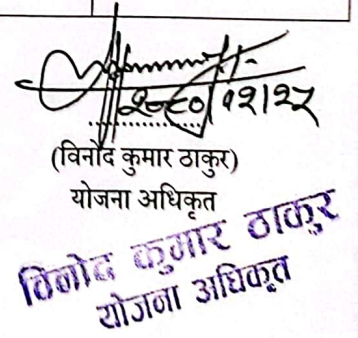 २०८०/१२/२५
(विनोद कुमार ठाकुर)
योजना अधिकृत
विनोद कुमार ठाकुर
योजना अधिकृत